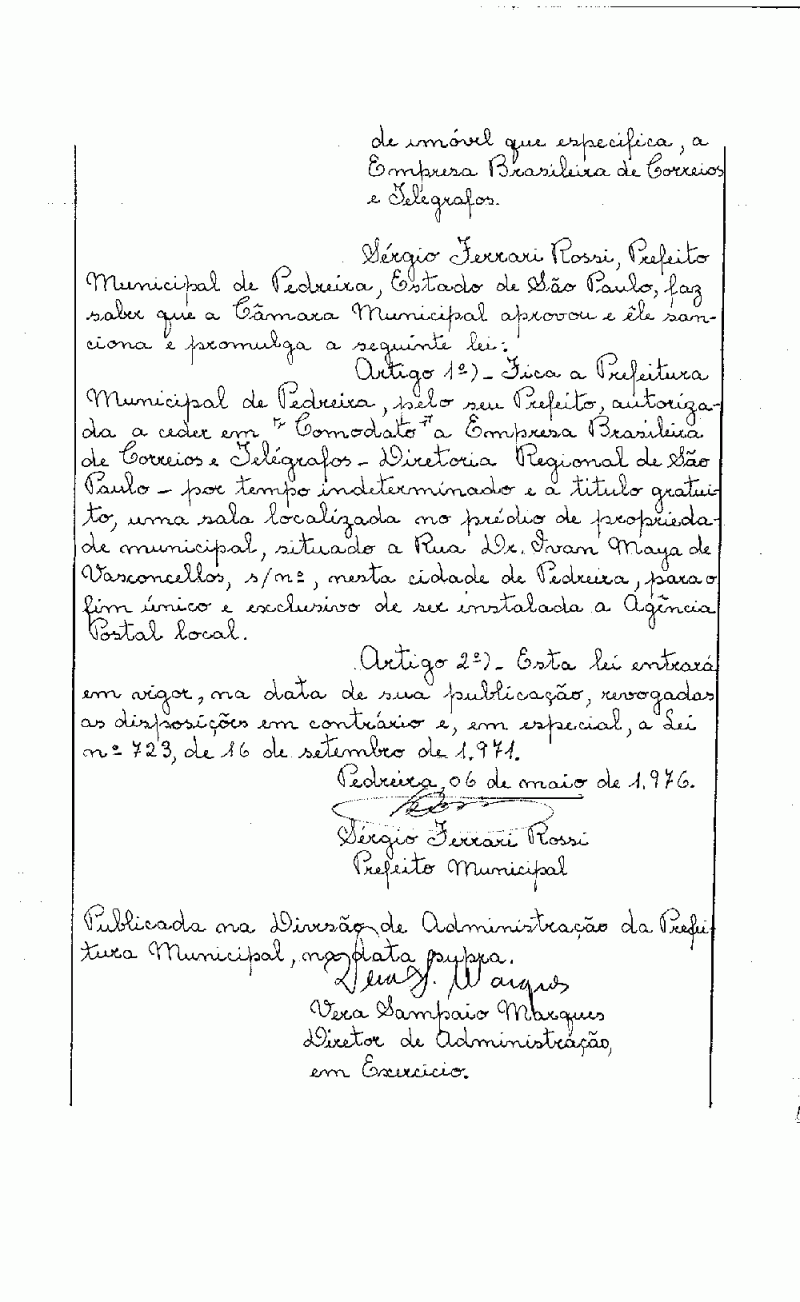 de imóvel que especifica, a
Empresa Brasileira de Correios
e Telégrafos.
Sérgio Ferrari Rossi, Prefeito
Municipal de Pedreira, Estado de São Paulo, faz
saber que a Câmara Municipal aprovou e êle san-
ciona e promulga a seguinte lei:
Artigo 1º)- Fica a Prefeitura
Municipal de Pedreira, pelo seu Prefeito, autoriza-
da a ceder em "Comodato" a Empresa Brasileira
de Correios e Telégrafos - Diretoria Regional de São
Paulo - por tempo indeterminado e a titulo gratui-
to, uma sala localizada no prédio de proprieda-
de municipal, situado a Rua Dr. Ivan Maya de
Vasconcellos, s/nº, nesta cidade de Pedreira, para o
fim único e exclusivo de ser instalada a Agência
Postal local.
Artigo 2º)- Esta lei entrará
em vigor, na data de sua publicação, revogadas
as disposições em contrário e, em especial, a Lei
nº 723, de 16 de setembro de 1.971.
Pedreira, 06 de maio de 1.976.
Sérgio Ferrari Rossi
Prefeito Municipal
Publicada na Divisão de Administração da Prefei
tura Municipal, na data supra.
Vera S. Marques
Vera Sampaio Marques
Diretor de Administração,
em Exercicio.